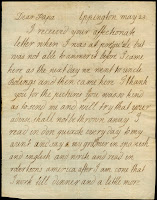 Dear Papa Eppington may 22
I received your affectionate
letter when I was at
but was not able to answer it before I came
here as the next day we went to uncle
Bolling's and then came here. I thank
you for the pictures you was so kind
as to send me and will try that your
advice shall not be thrown away. I
read in don quixote every day to my
aunt and say my grammer in spanish
and english and write and read in
robertson's america after I am done that
I work till dinner and a little more